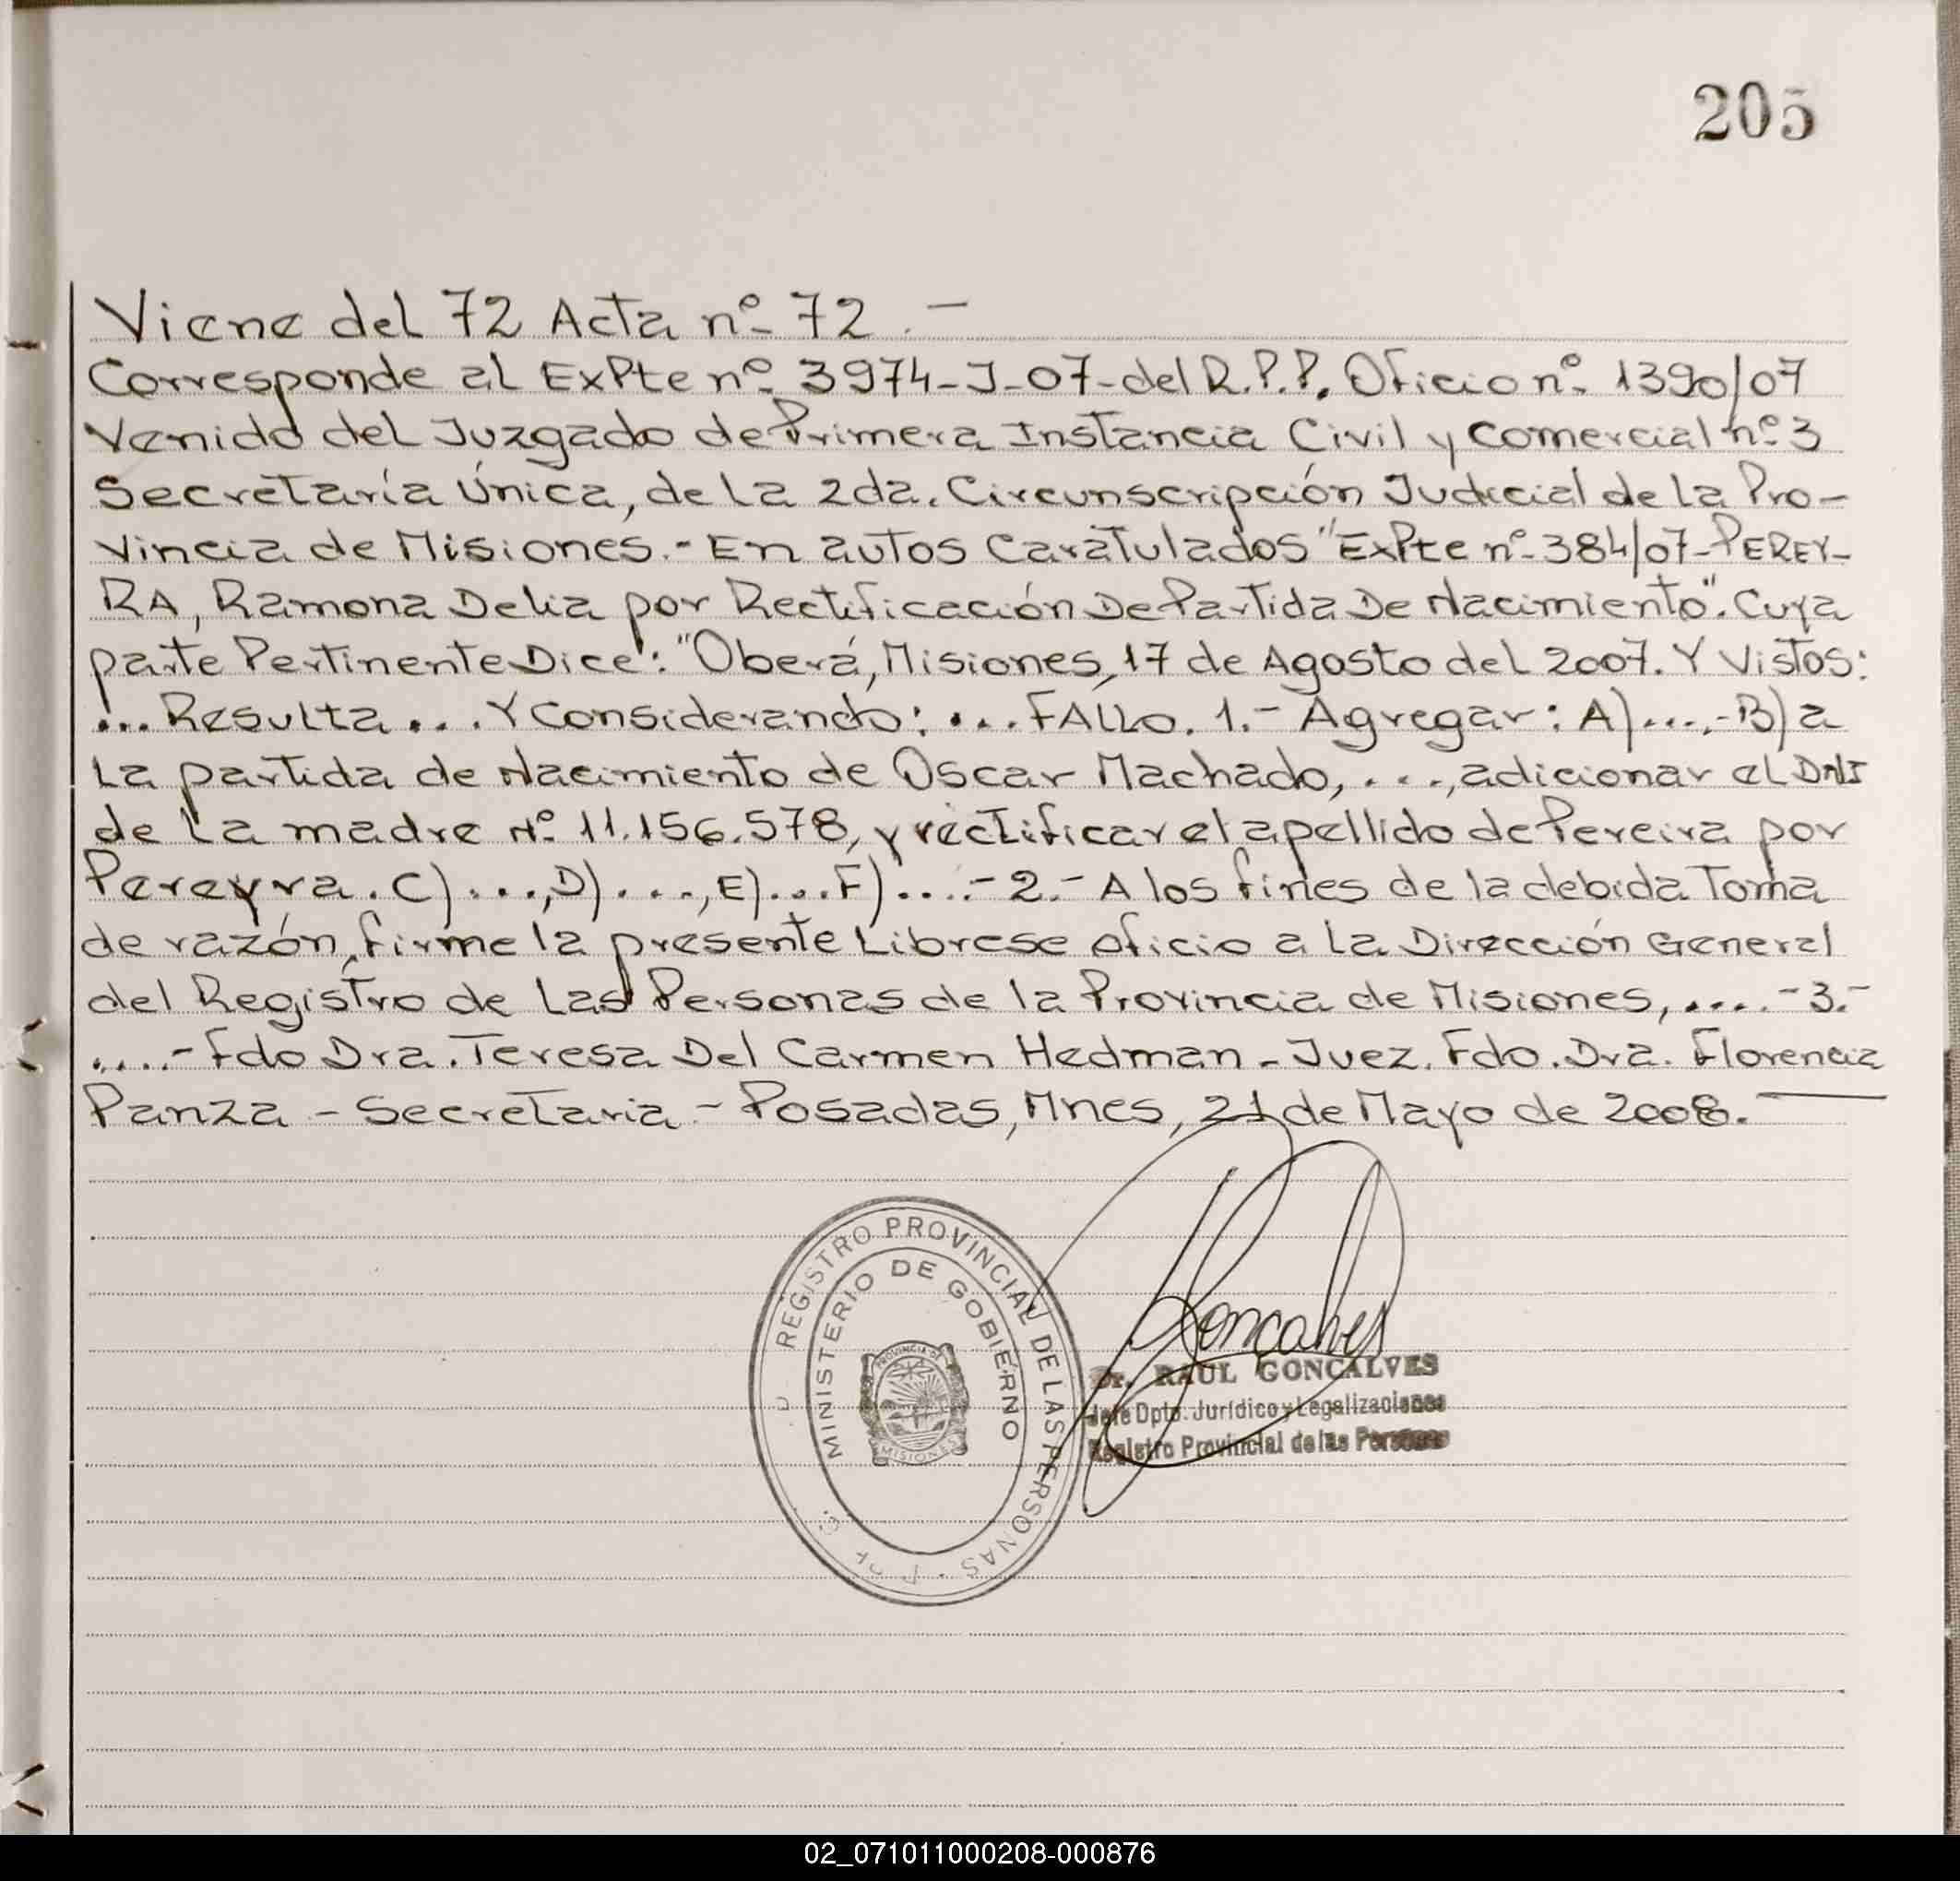 205
Viene del 72 Acta nº 72.-
Corresponde al ExPte nº 3974-J-07-del R.P.P. Oficio nº 1390/07
Venido del Juzgado de Primera Instancia Civil y Comercial nº 3
Secretaría Única, de La 2da. Circunscripción Judicial de La Pro-
vincia de Misiones.- En autos Caratulados "ExPte nº 384/07-PEREY-
RA, Ramona Delia por Rectificación De Partida De Nacimiento". Cuya
parte Pertinente Dice: "Oberá, Misiones, 17 de Agosto del 2007. Y Vistos:
... Resulta .... Y Considerando: .... FALLO. 1.- Agregar: A)....- B) a
La partida de Nacimiento de Oscar Machado, ...., adicionar el DNI
de La madre Nº 11.156.578, y rectificar el apellido de Pereira por
Pereyra. C) ...., D) ...., E)....F) ....- 2.- A los fines de la debida Toma
de razón, firme la presente Librese oficio a La Dirección General
del Registro de Las Personas de la Provincia de Misiones, ....- 3.-
....- Fdo Dra. Teresa Del Carmen Hedman - Juez. Fdo. Dra. Florencia
Panza - Secretaria - Posadas, Mnes, 21 de Mayo de 2008.
REGISTRO PROVINCIAL DE LAS PERSONAS
MINISTERIO DE GOBIERNO
PROVINCIA DE
MISIONES
Goncalves
Dr. RAUL GONCALVES
Jefe Dpto. Jurídico y Legalizaciones
Registro Provincial de las Personas
02_071011000208-000876